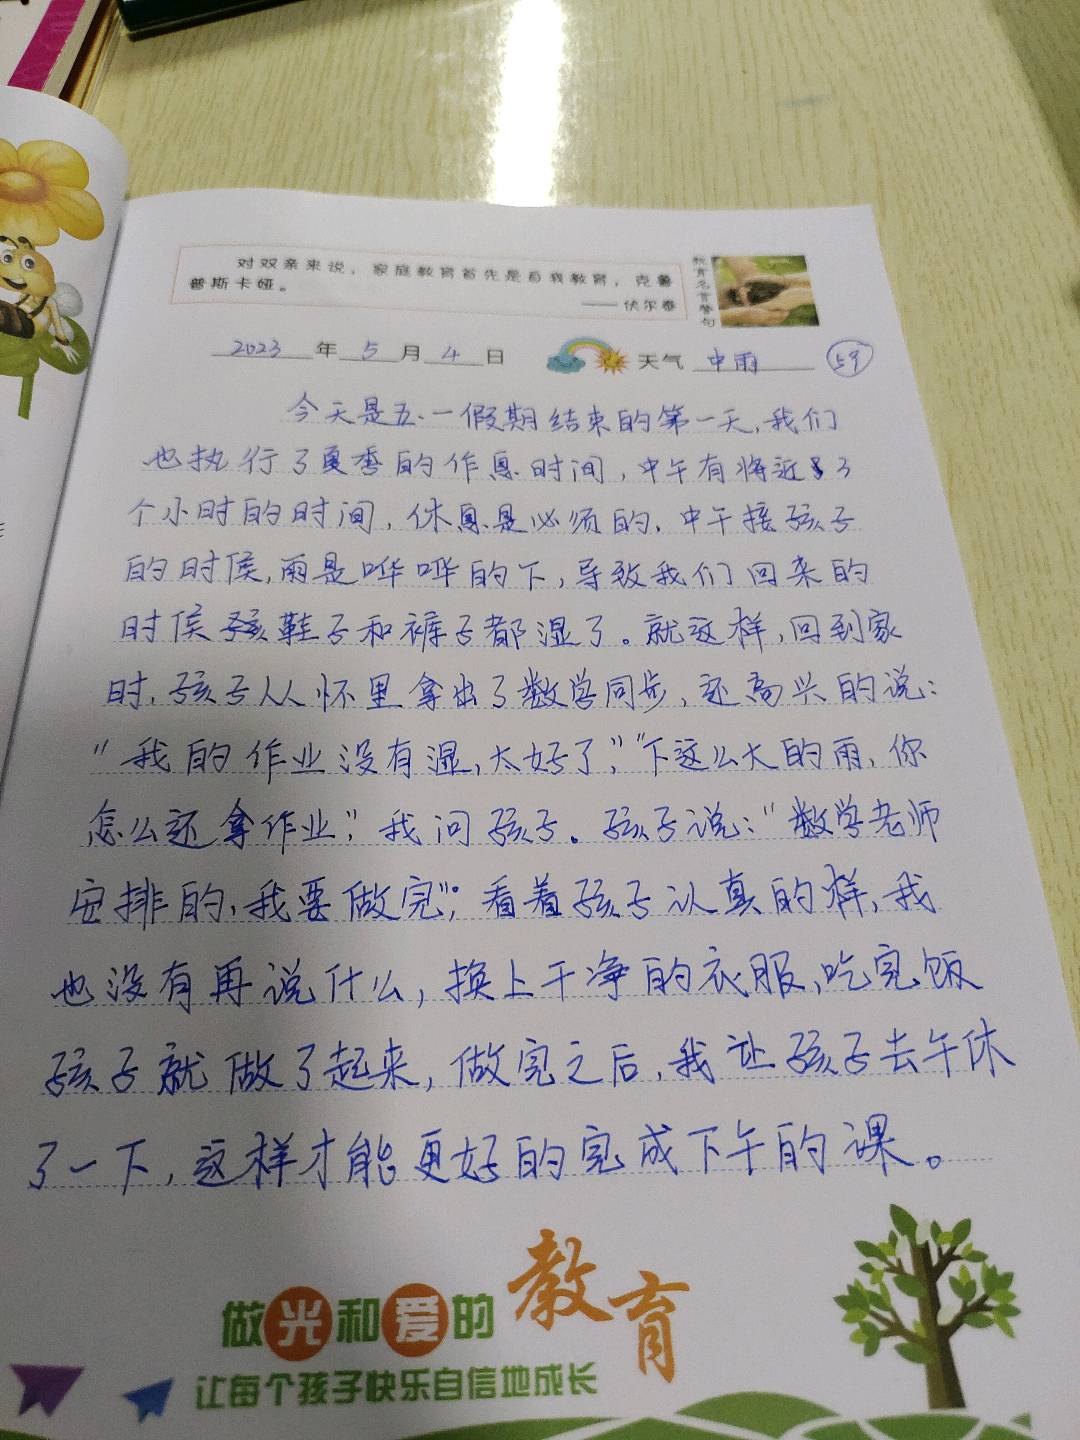 对双亲来说，家庭教育首先是自我教育，克鲁
普斯卡娅。
——伏尔泰
教育名言警句
2023 年 5 月 4 日 天气 中雨 59
今天是五·一假期结束的第一天，我们
也执行了夏季的作息时间，中午有将近3
个小时的时间，休息是必须的，中午接孩子
的时候，雨是哗哗的下，导致我们回来的
时候孩鞋子和裤子都湿了。就这样，回到家
时，孩子从怀里拿出了数学同步，还高兴的说：
“我的作业没有湿，太好了，”“下这么大的雨，你
怎么还拿作业，”我问孩子。孩子说：“数学老师
安排的，我要做完”。看着孩子认真的样，我
也没有再说什么，换上干净的衣服，吃完饭
孩子就做了起来，做完之后，我让孩子去午休
了一下，这样才能更好的完成下午的课。
做光和爱的教育
让每个孩子快乐自信地成长